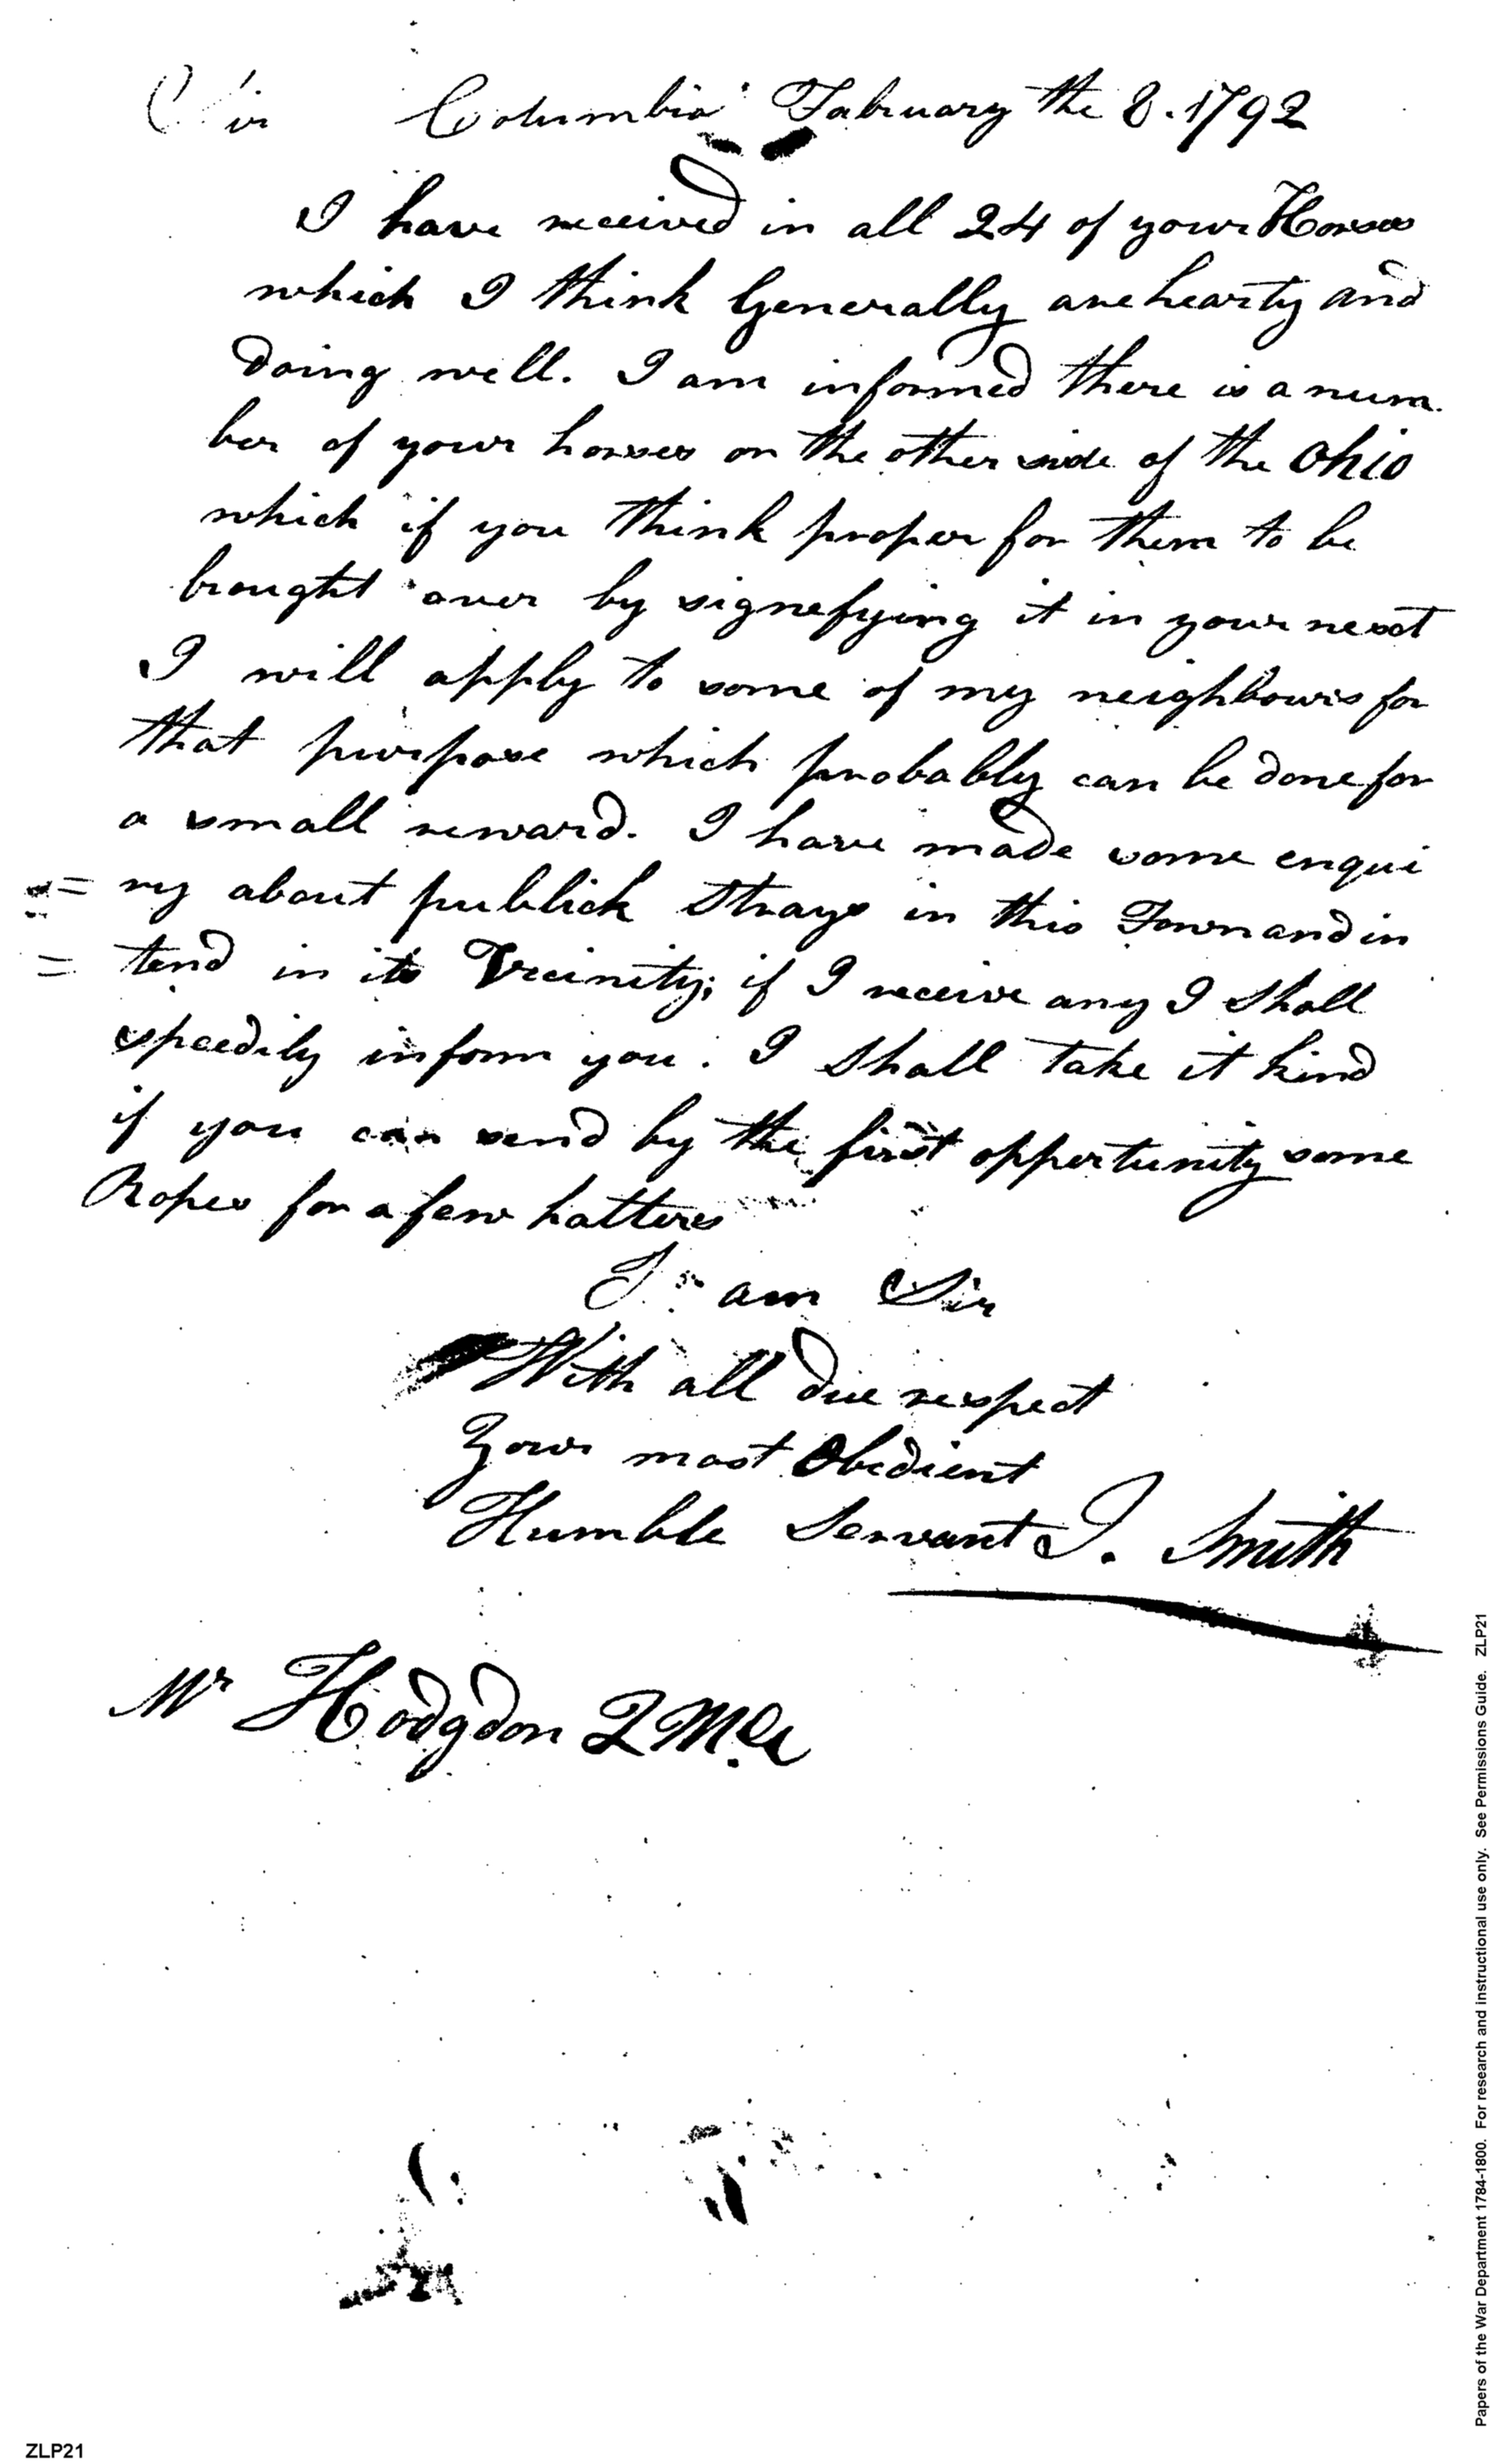 Sir Columbia Fabruary the 8. 1792
I have received in all 24 of your Horses
which I think Generally are hearty and
doing well. I am informed there is a num
ber of your horses on the other side of the Ohio
which if you think proper for them to be
brought over by signefying it in your next
I will apply to some of my neighbours for
that purpose which probably can be done for
a small reward. I have made some enqui
= ry about publick Strays in this Town and in
= tend in its Vicinity; if I receive any I shall
speedily inform you. I shall take it kind
if you can send by the first opportunity some
Ropes for a few halters
I am Sir
With all due respect
Your most Obedient
Humble Servant J. Smith
Mr Hodgdon Q M.
Papers of the War Department 1784-1800. For research and instructional use only. See Permissions Guide. ZLP21
ZLP21